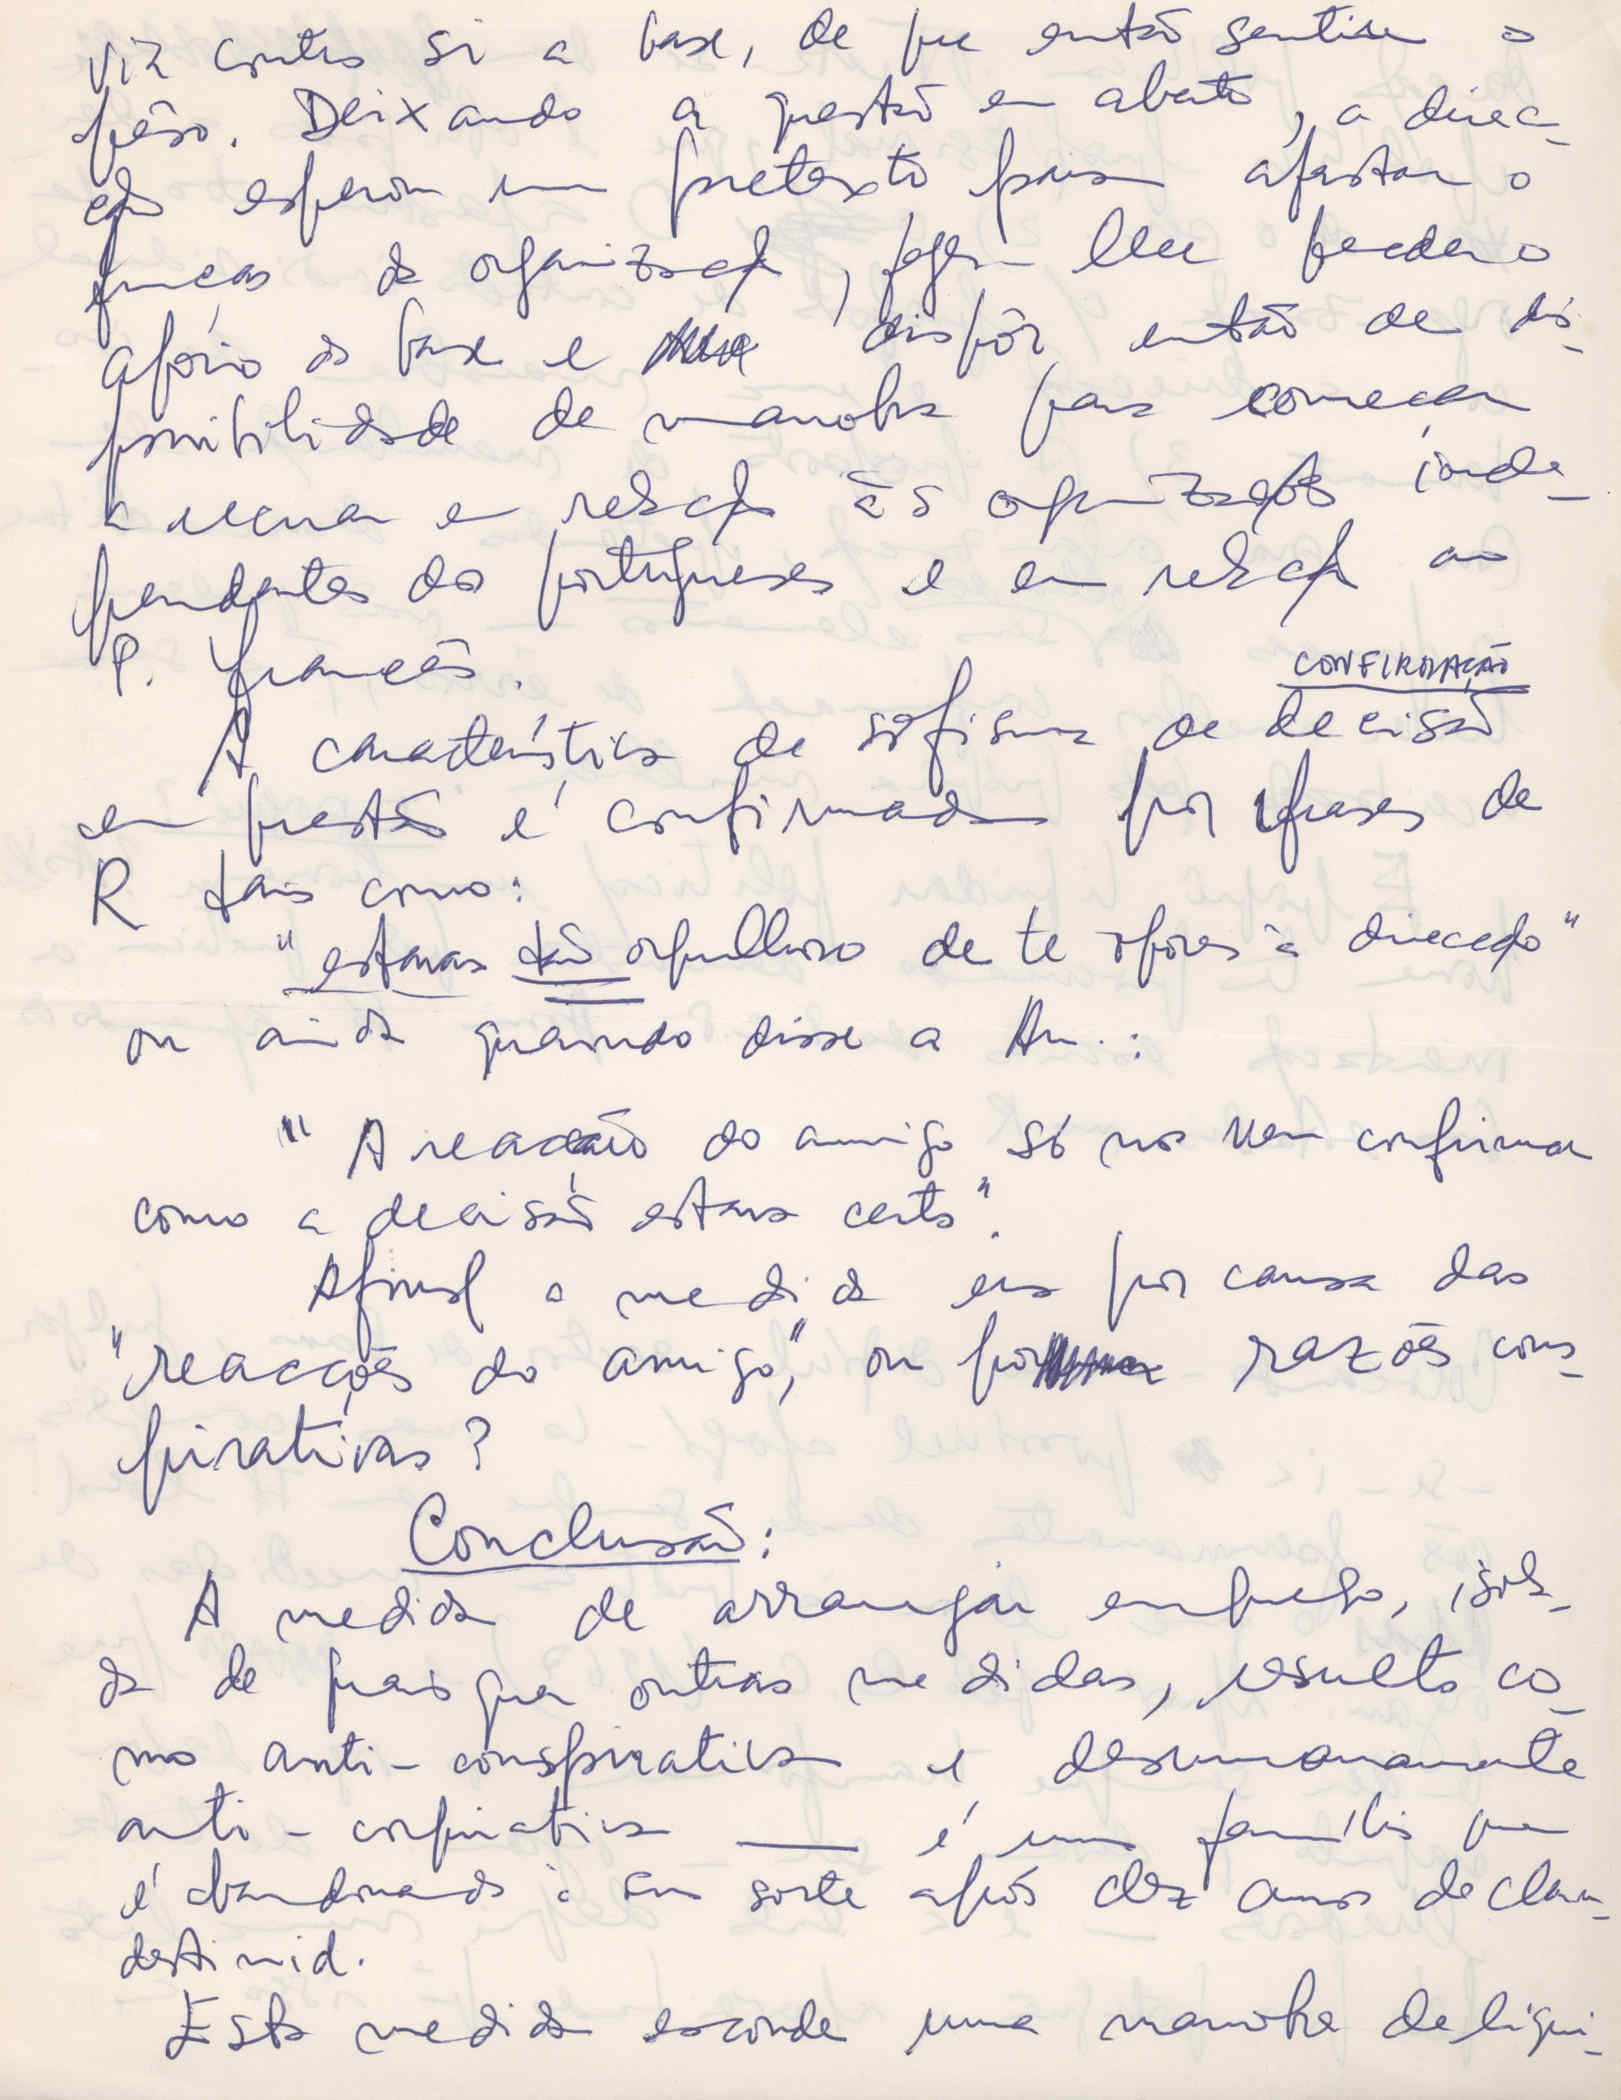 vir contra si a base, de que então sentiu o
pêso. Deixando a questão em aberto, a direc-
ção esperou um pretexto para afastar o
funcas da organização, fazer-lhe perder o
apoio da base e dispôr então de dis-
ponibilidade de manobra para começar
a recuar em relação às organizações inde-
pendentes dos portugueses e em relação ao
P. francês.
CONFIRMAÇÃO
A característica de sofisma de decisão
em questão é confirmada por frases de
R tais como:
"estavas tão orgulhoso de te opores à direcção"
ou ainda quando disse a An.:
"A reacção do amigo só nos vem confirmar
como a decisão estava certa".
Afinal a medida era por causa das
"reacções do amigo", ou por razões cons-
pirativas?
Conclusão:
A medida de arranjar emprego, isola-
da de quaisquer outras medidas, resulta co-
mo anti-conspirativa e desumanamente
anti-conspirativa — é uma família que
é abandonada à sua sorte após dez anos de clan-
destinid.
Esta medida esconde uma manobra de liqui-